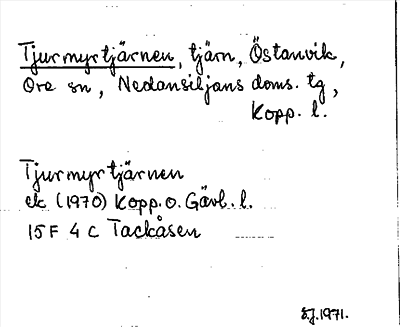 Tjurmyrtjärnen, tjärn, Östanvik,
Ore sn, Nedansiljans doms. tg,
Kopp. l.
Tjurmyrtjärnen
ek (1970) Kopp. o. Gävl. l.
15F 4 C Tackåsen
SJ. 1971.